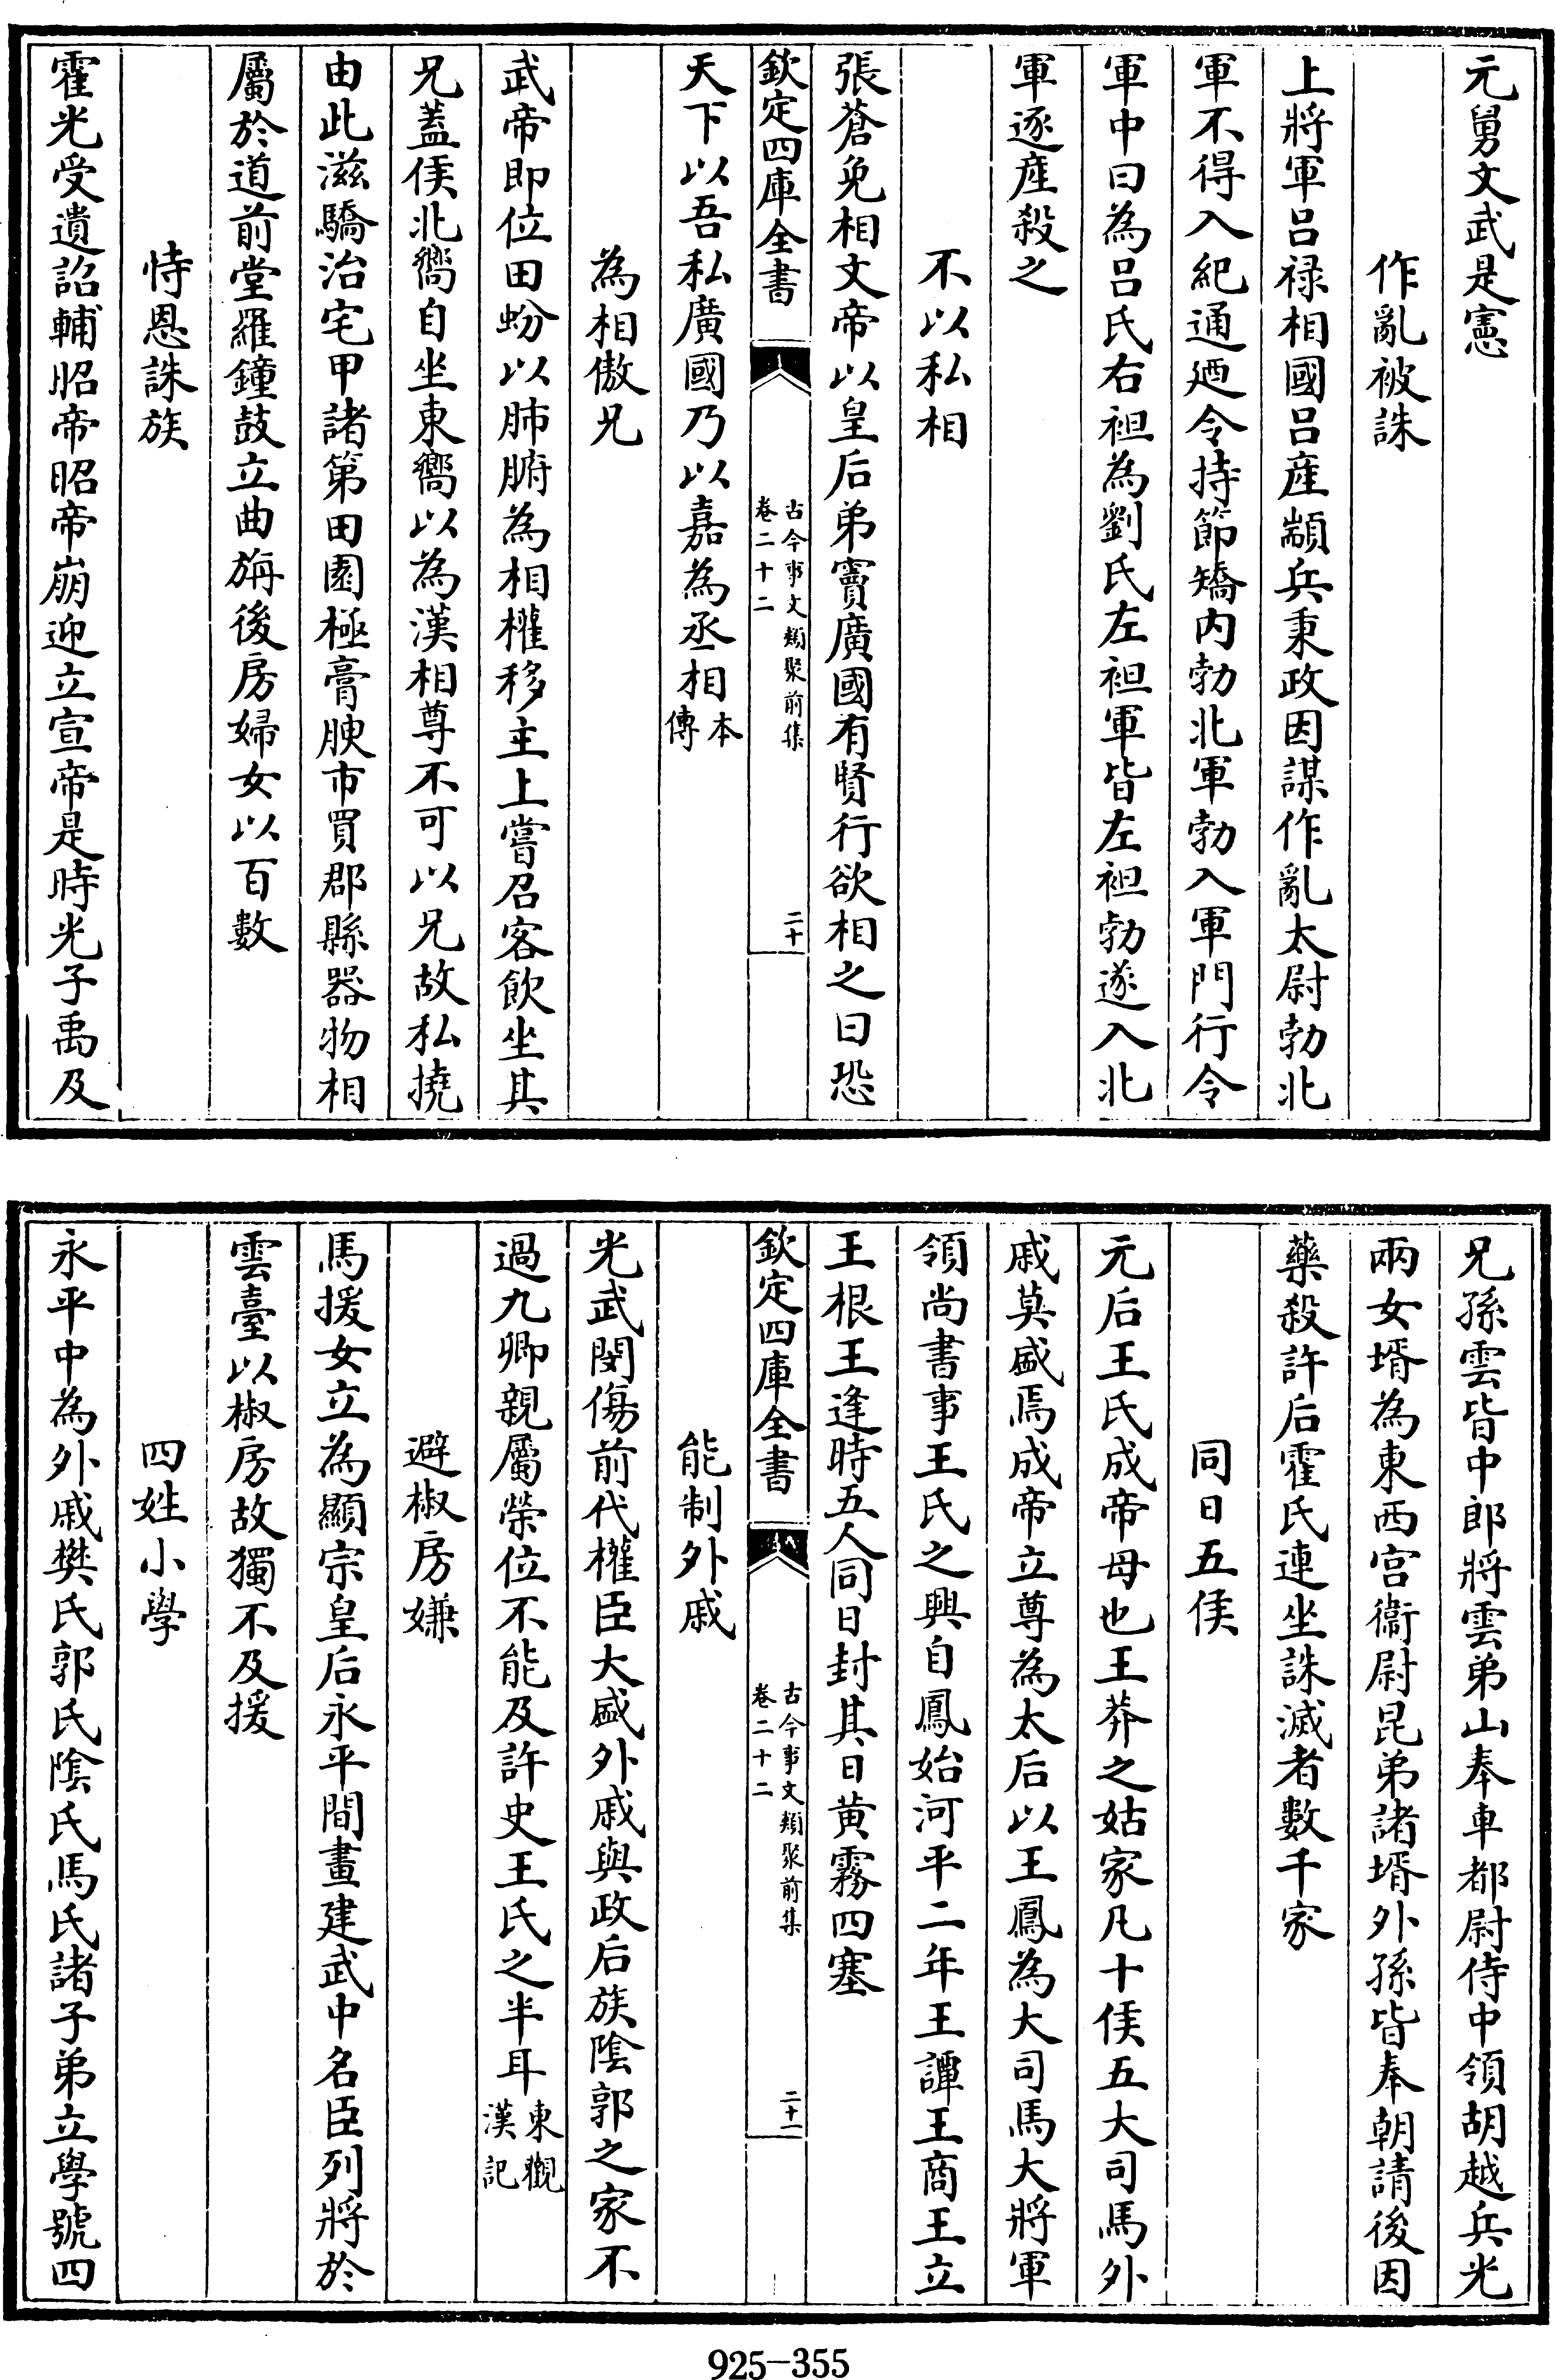 元舅文武是憲
作亂被誅
上將軍呂禄相國呂産顓兵秉政因謀作亂太尉勃北
軍不得入紀通廼令持節矯内勃北軍勃入軍門行令
軍中曰為呂氏右袒為劉氏左袒軍皆左袒勃遂入北
軍逐産殺之
不以私相
張蒼免相文帝以皇后弟竇廣國有賢行欲相之曰恐
欽定四庫全書
古今事文類聚前集
卷二十二
二十
天下以吾私廣國乃以嘉為丞相本傳
為相傲兄
武帝即位田蚡以肺腑為相權移主上嘗召客飲坐其
兄蓋侯北嚮自坐東嚮以為漢相尊不可以兄故私撓
由此滋驕治宅甲諸第田園極膏腴市買郡縣器物相
屬於道前堂羅鐘鼓立曲旃後房婦女以百數
恃恩誅族
霍光受遺詔輔昭帝昭帝崩迎立宣帝是時光子禹及
兄孫雲皆中郎將雲弟山奉車都尉侍中領胡越兵光
兩女壻為東西宫衞尉昆弟諸壻外孫皆奉朝請後因
藥殺許后霍氏連坐誅滅者數千家
同日五侯
元后王氏成帝母也王莽之姑家凡十侯五大司馬外
戚莫盛焉成帝立尊為太后以王鳳為大司馬大將軍
領尚書事王氏之興自鳳始河平二年王譚王商王立
王根王逢時五人同日封其日黄霧四塞
欽定四庫全書
古今事文類聚前集
卷二十二
二十一
能制外戚
光武閔傷前代權臣大盛外戚與政后族陰郭之家不
過九卿親屬榮位不能及許史王氏之半耳東觀漢記
避椒房嫌
馬援女立為顯宗皇后永平間畫建武中名臣列將於
雲臺以椒房故獨不及援
四姓小學
永平中為外戚樊氏郭氏陰氏馬氏諸子弟立學號四
925-355